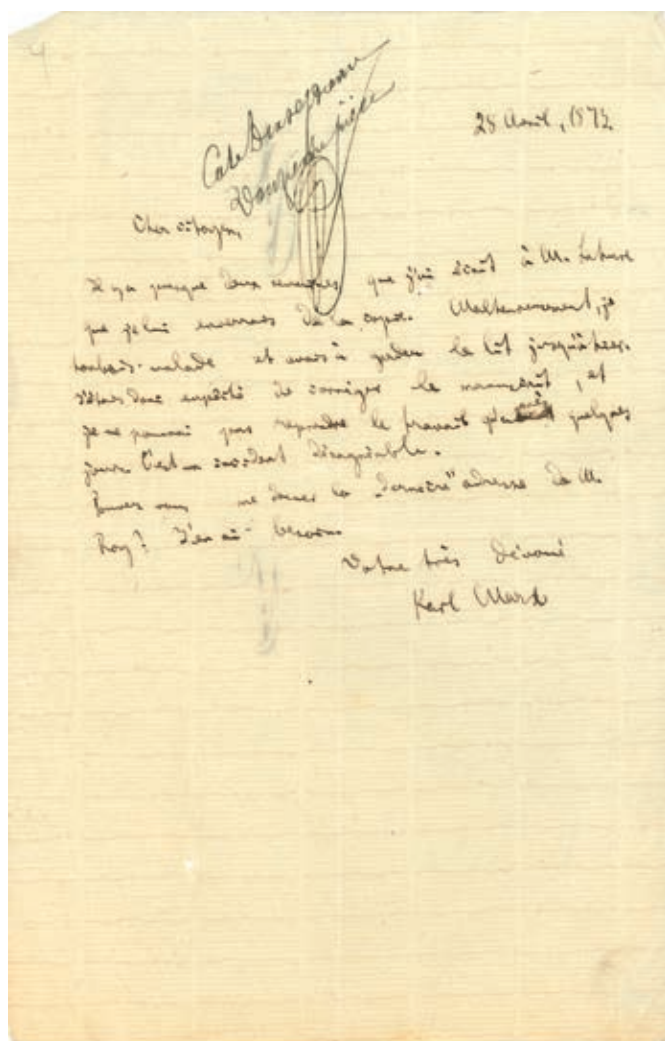 4
Cote Deuxième
Douzième pièce
28 Avril, 1873
Cher citoyen,
Il y a presque deux semaines que j'ai écrit à M. Lahure
que je lui enverrais de la copie. Malheureusement, je
tombais malade et avais à garder le lit jusqu'à hier.
J'étais donc empêché de corriger le manuscrit, et
je ne pourrai pas reprendre le travail qu'après quelques
jours. C'est un incident désagréable.
Pouvez vous me donner la "dernière" adresse de M.
Roy? J'en ai besoin.
Votre très dévoué
Karl Marx